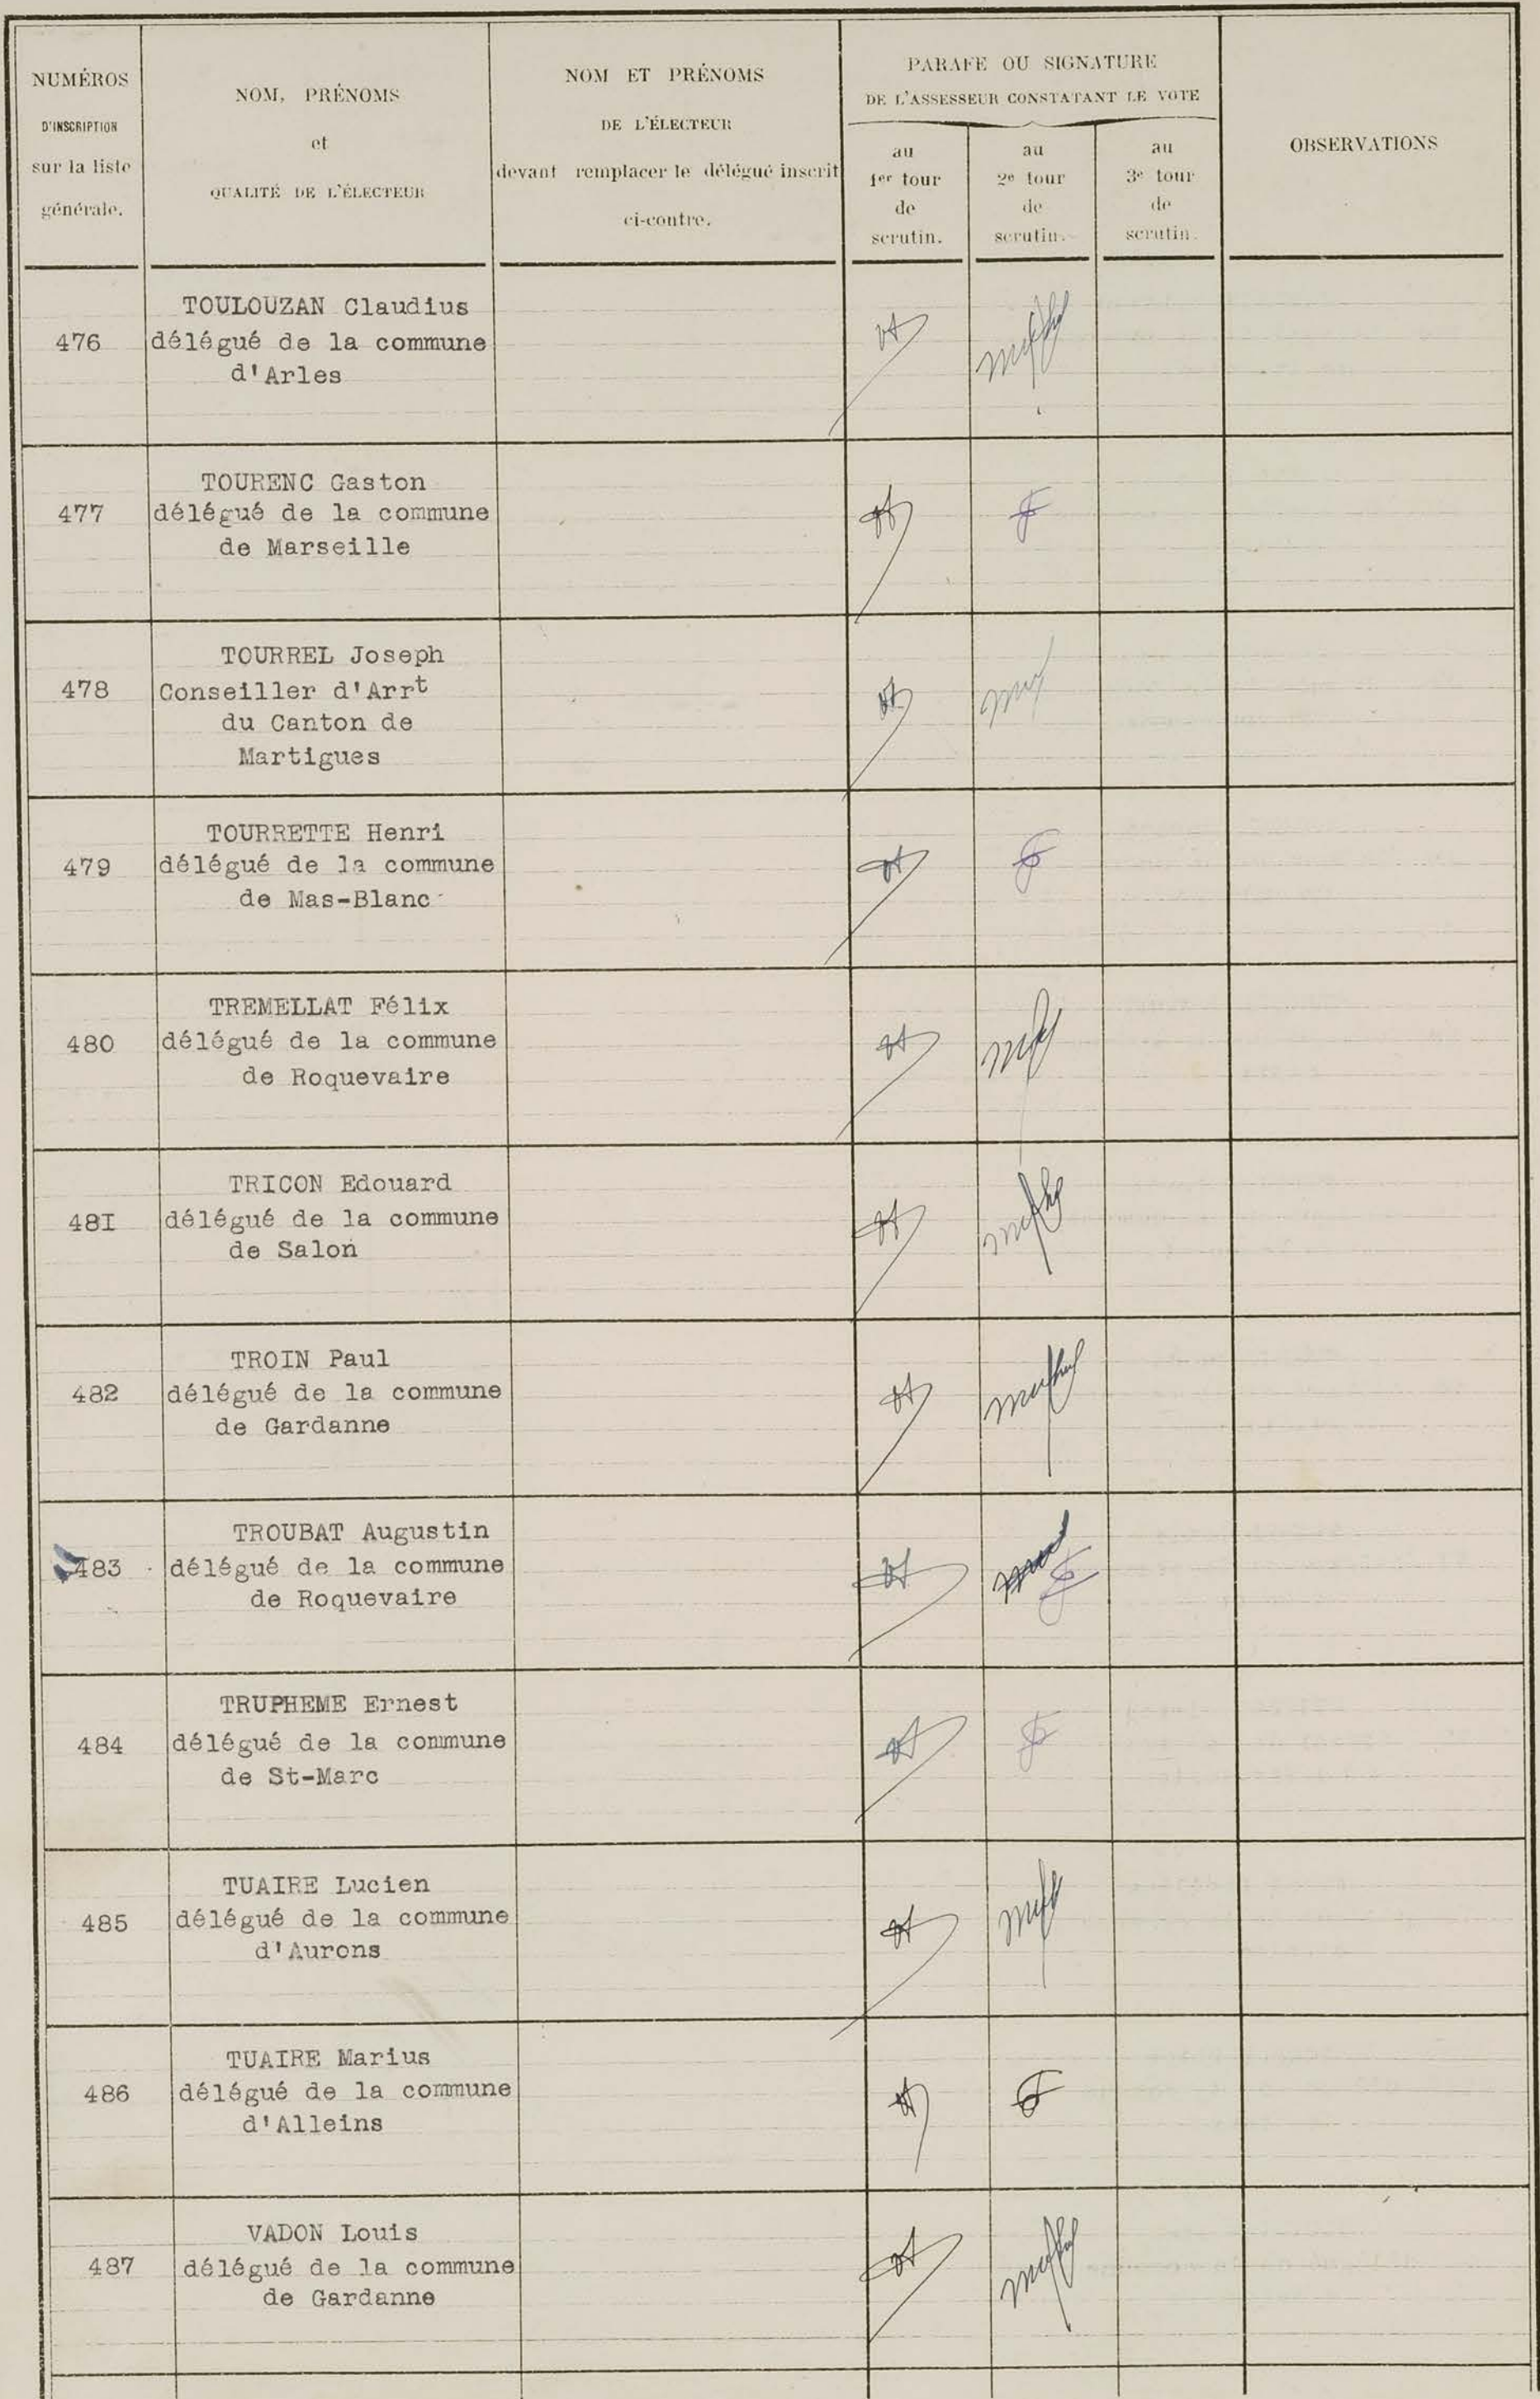 NUMÉROS
D'INSCRIPTION
sur la liste
générale.
NOM, PRÉNOMS
et
QUALITÉ DE L'ÉLECTEUR
NOM ET PRÉNOMS
DE L'ÉLECTEUR
devant remplacer le délégué inscrit
ci-contre.
PARAFE OU SIGNATURE
DE L'ASSESSEUR CONSTATANT LE VOTE
au
1er tour
de
scrutin.
au
2e tour
de
scrutin.
au
3e tour
de
scrutin.
OBSERVATIONS
476
TOULOUZAN Claudius
délégué de la commune
d'Arles
477
TOURENC Gaston
délégué de la commune
de Marseille
478
TOURREL Joseph
Conseiller d'Arrt
du Canton de
Martigues
479
TOURRETTE Henri
délégué de la commune
de Mas-Blanc
480
TREMELLAT Félix
délégué de la commune
de Roquevaire
48I
TRICON Edouard
délégué de la commune
de Salon
482
TROIN Paul
délégué de la commune
de Gardanne
483
TROUBAT Augustin
délégué de la commune
de Roquevaire
484
TRUPHEME Ernest
délégué de la commune
de St-Marc
485
TUAIRE Lucien
délégué de la commune
d'Aurons
486
TUAIRE Marius
délégué de la commune
d'Alleins
487
VADON Louis
délégué de la commune
de Gardanne